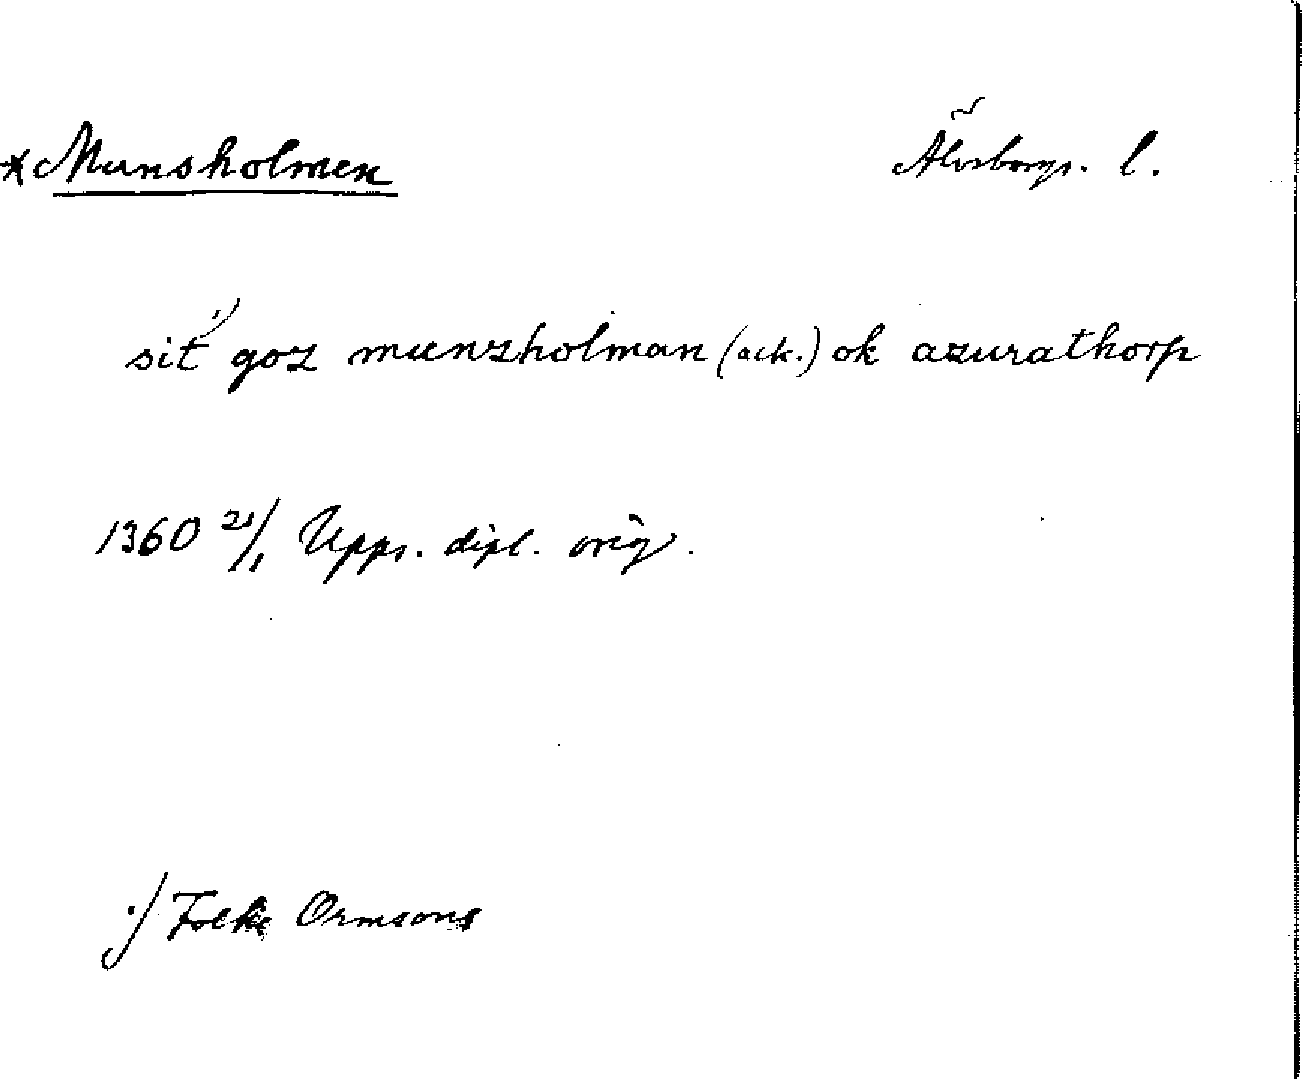 *Munsholmen Älvsborgs. l.
sit ¹) goz munzholman (ack.) ok azurathorp
1360 21/1 Upps. dipl. orig.
¹) Folke Ormsons